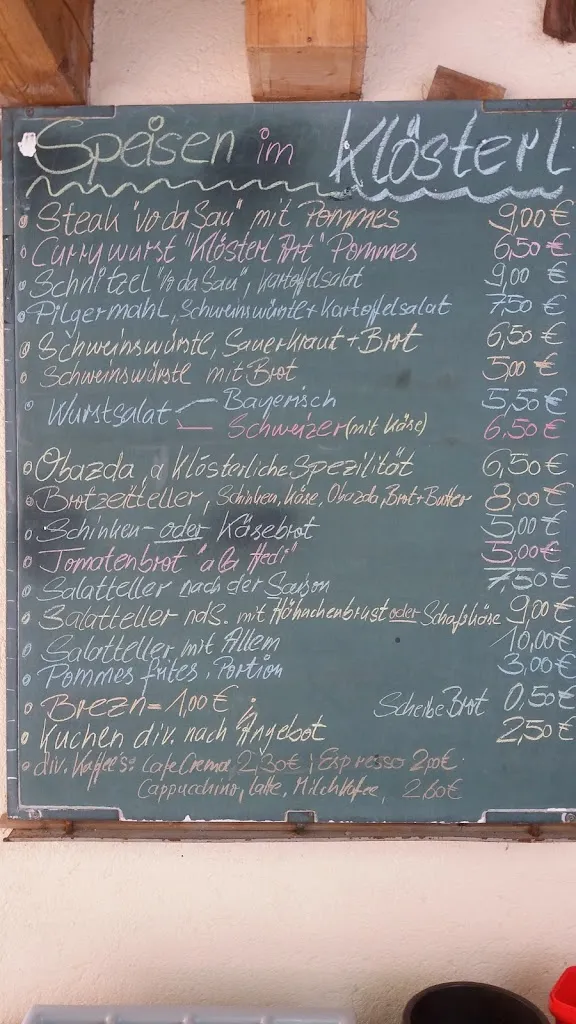 Speisen im Klösterl
Steak "vo da Sau" mit Pommes 9,00 €
Currywurst "Klösterl Art" Pommes 6,50 €
Schnitzel "vo da Sau", Kartoffelsalat 9,00 €
Pilgermahl, Schweinswürstl + Kartoffelsalat 7,50 €
Schweinswürstl, Sauerkraut + Brot 6,50 €
Schweinswürstl mit Brot 5,00 €
Wurstsalat Bayerisch 5,50 €
Schweizer (mit Käse) 6,50 €
Obazda, a Klösterliche Spezilität 6,50 €
Brotzeitteller, Schinken, Käse, Obazda, Brot + Butter 8,00 €
Schinken- oder Käsebrot 5,00 €
Tomatenbrot "a la Hedi" 5,00 €
Salatteller nach der Saison 7,50 €
Salatteller ndS. mit Hähnchenbrust oder Schafskäse 9,00 €
Salatteller mit Allem 10,00 €
Pommes frites, Portion 3,00 €
Brezn = 1,00 € ; Scheibe Brot 0,50 €
Kuchen div. nach Angebot 2,50 €
div. Kaffee's: Cafe Crema 2,30 € ; Espresso 2,00 €
Cappucchino, Latte, Milchkaffee, 2,60 €